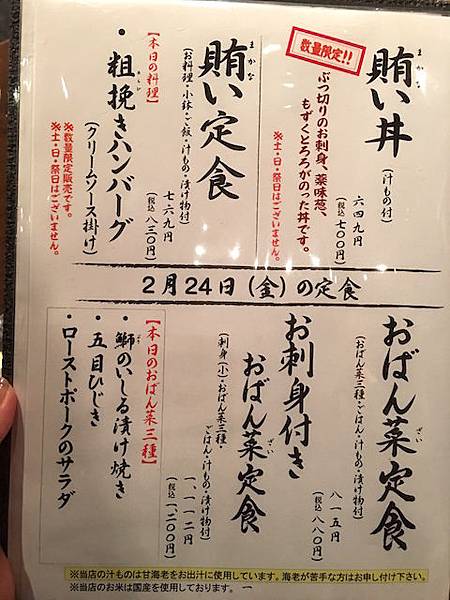 数量限定!!
まかな
賄い丼
(汁もの付)
六四九円
(税込 七〇〇円)
ぶつ切りのお刺身、薬味葱、
もずくとろろがのった丼です。
※土・日・祭日はございません。
まかな
賄い定食
(お料理・小鉢・ご飯・汁もの・漬け物付)
七六九円
(税込 八三〇円)
【本日の料理】
・粗挽きハンバーグ
あらび
(クリームソース掛け)
※数量限定販売です。
※土・日・祭日はございません。
2月24日(金)の定食
おばん菜定食
ざい
(おばん菜三種・ごはん・汁もの・漬け物付)
八一五円
(税込 八八〇円)
お刺身付き
おばん菜定食
ざい
(刺身(小)・おばん菜三種・
ごはん・汁もの・漬け物付)
一、一一二円
(税込 一、二〇〇円)
【本日のおばん菜三種】
・鰤のいしる漬け焼き
・五目ひじき
・ローストポークのサラダ
※当店の汁ものは甘海老をお出汁に使用しています。海老が苦手な方はお申し付け下さい。
※当店のお米は国産を使用しております。